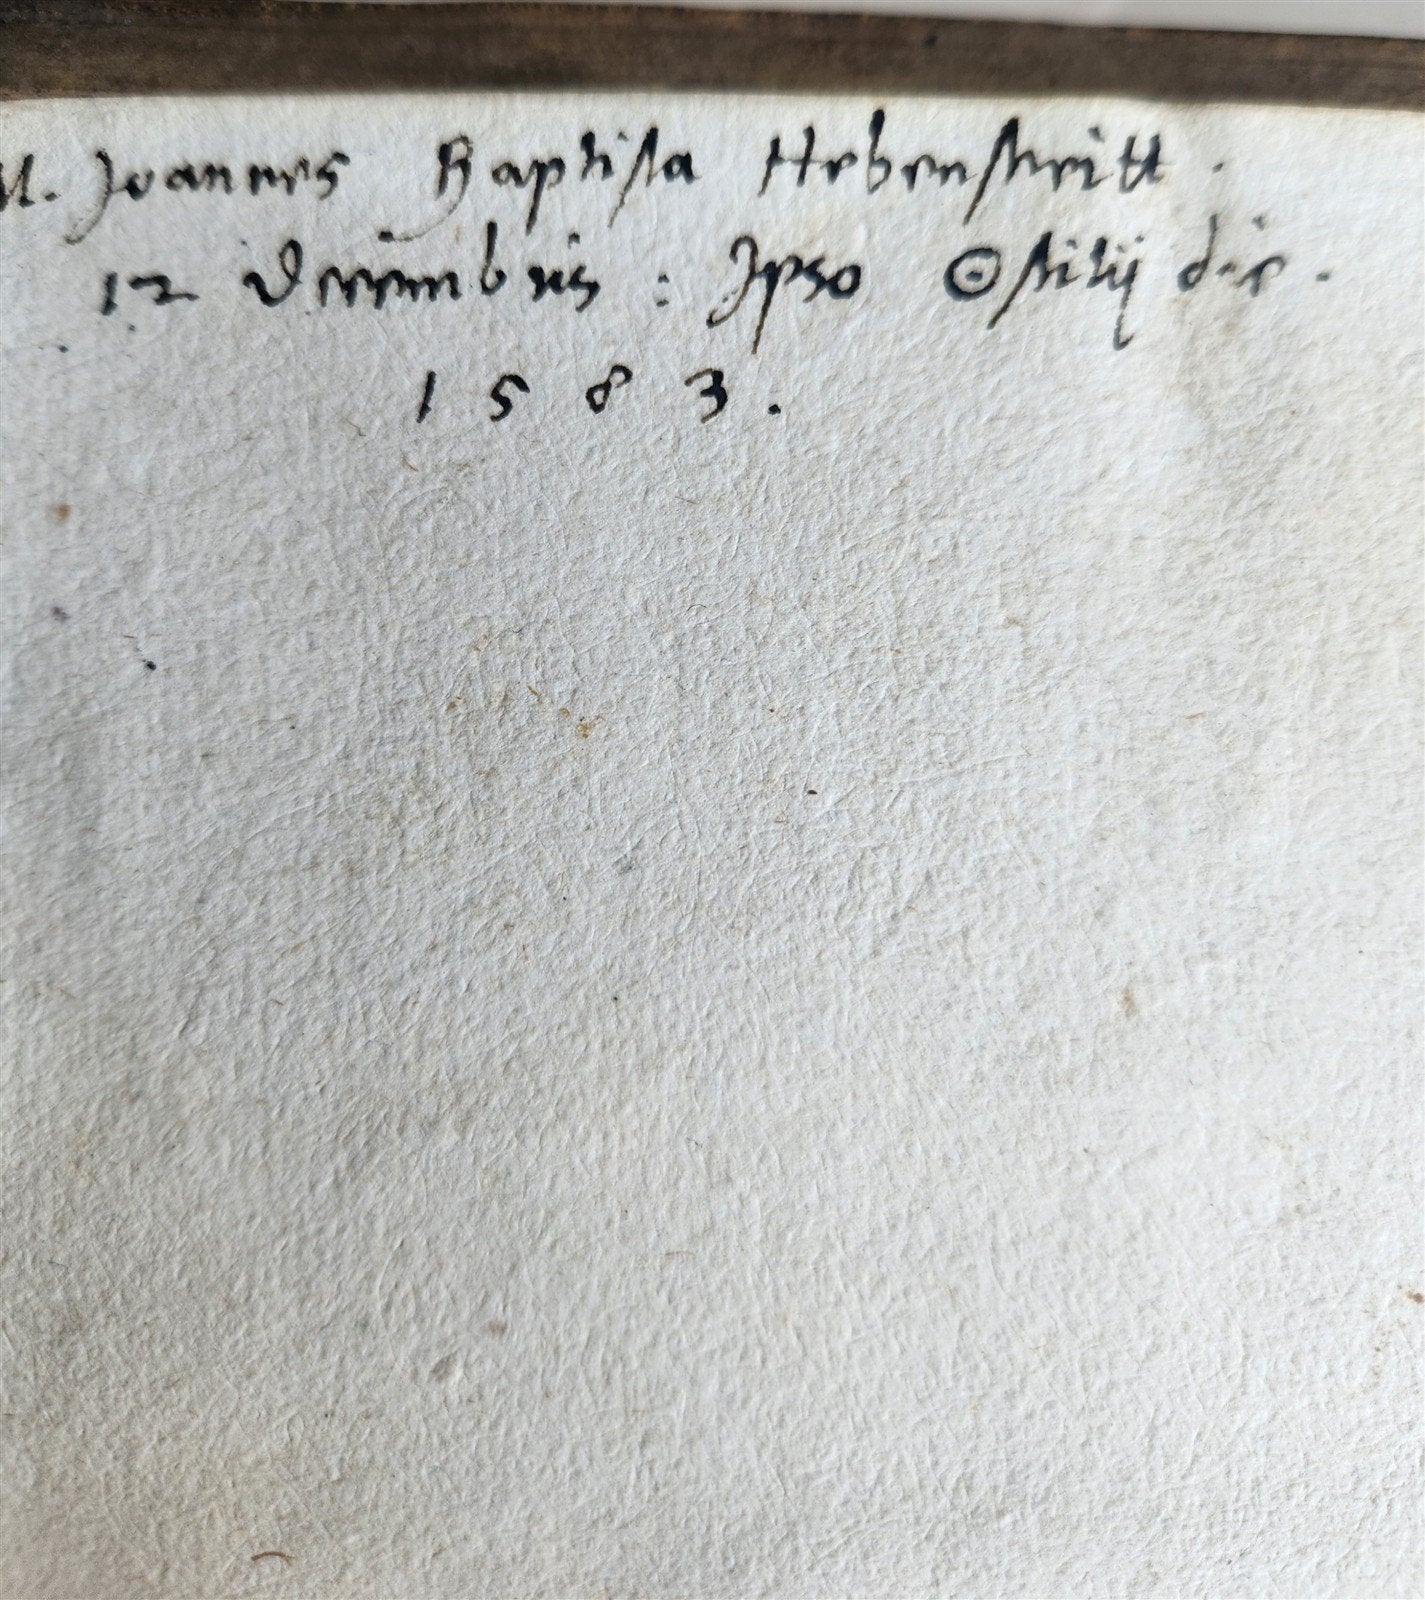 M. Joannes Baptista Hebenstreitt.
12 Decembris: Ipso ☉stitij die.
1583.